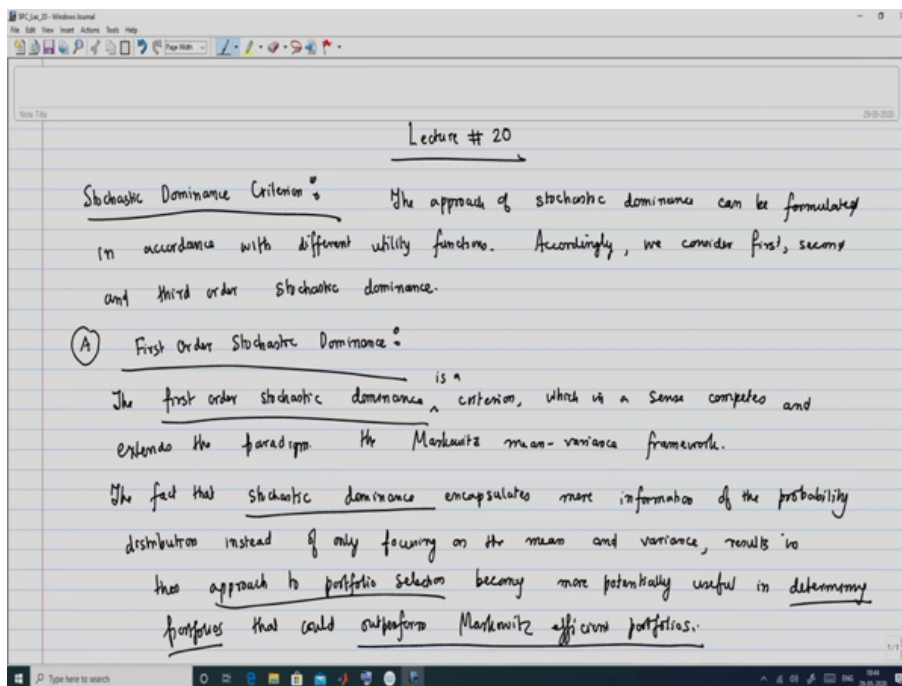 SPC_Lec_20 - Windows Journal
File Edit View Insert Actions Tools Help
Page Width
Note Title
29-05-2020
Lecture # 20
Stochastic Dominance Criterion : The approach of stochastic dominance can be formulated
in accordance with different utility functions. Accordingly, we consider first, second
and third order stochastic dominance.
A First Order Stochastic Dominance :
is a
The first order stochastic dominance ^ criterion, which in a sense competes and
extends the paradigm the Markowitz mean-variance framework.
The fact that stochastic dominance encapsulates more information of the probability
distribution instead of only focusing on the mean and variance, results in
this approach to portfolio selection becomy more potentially useful in determining
portfolios that could outperform Markowitz efficient portfolios.
1/1
Type here to search
ENG